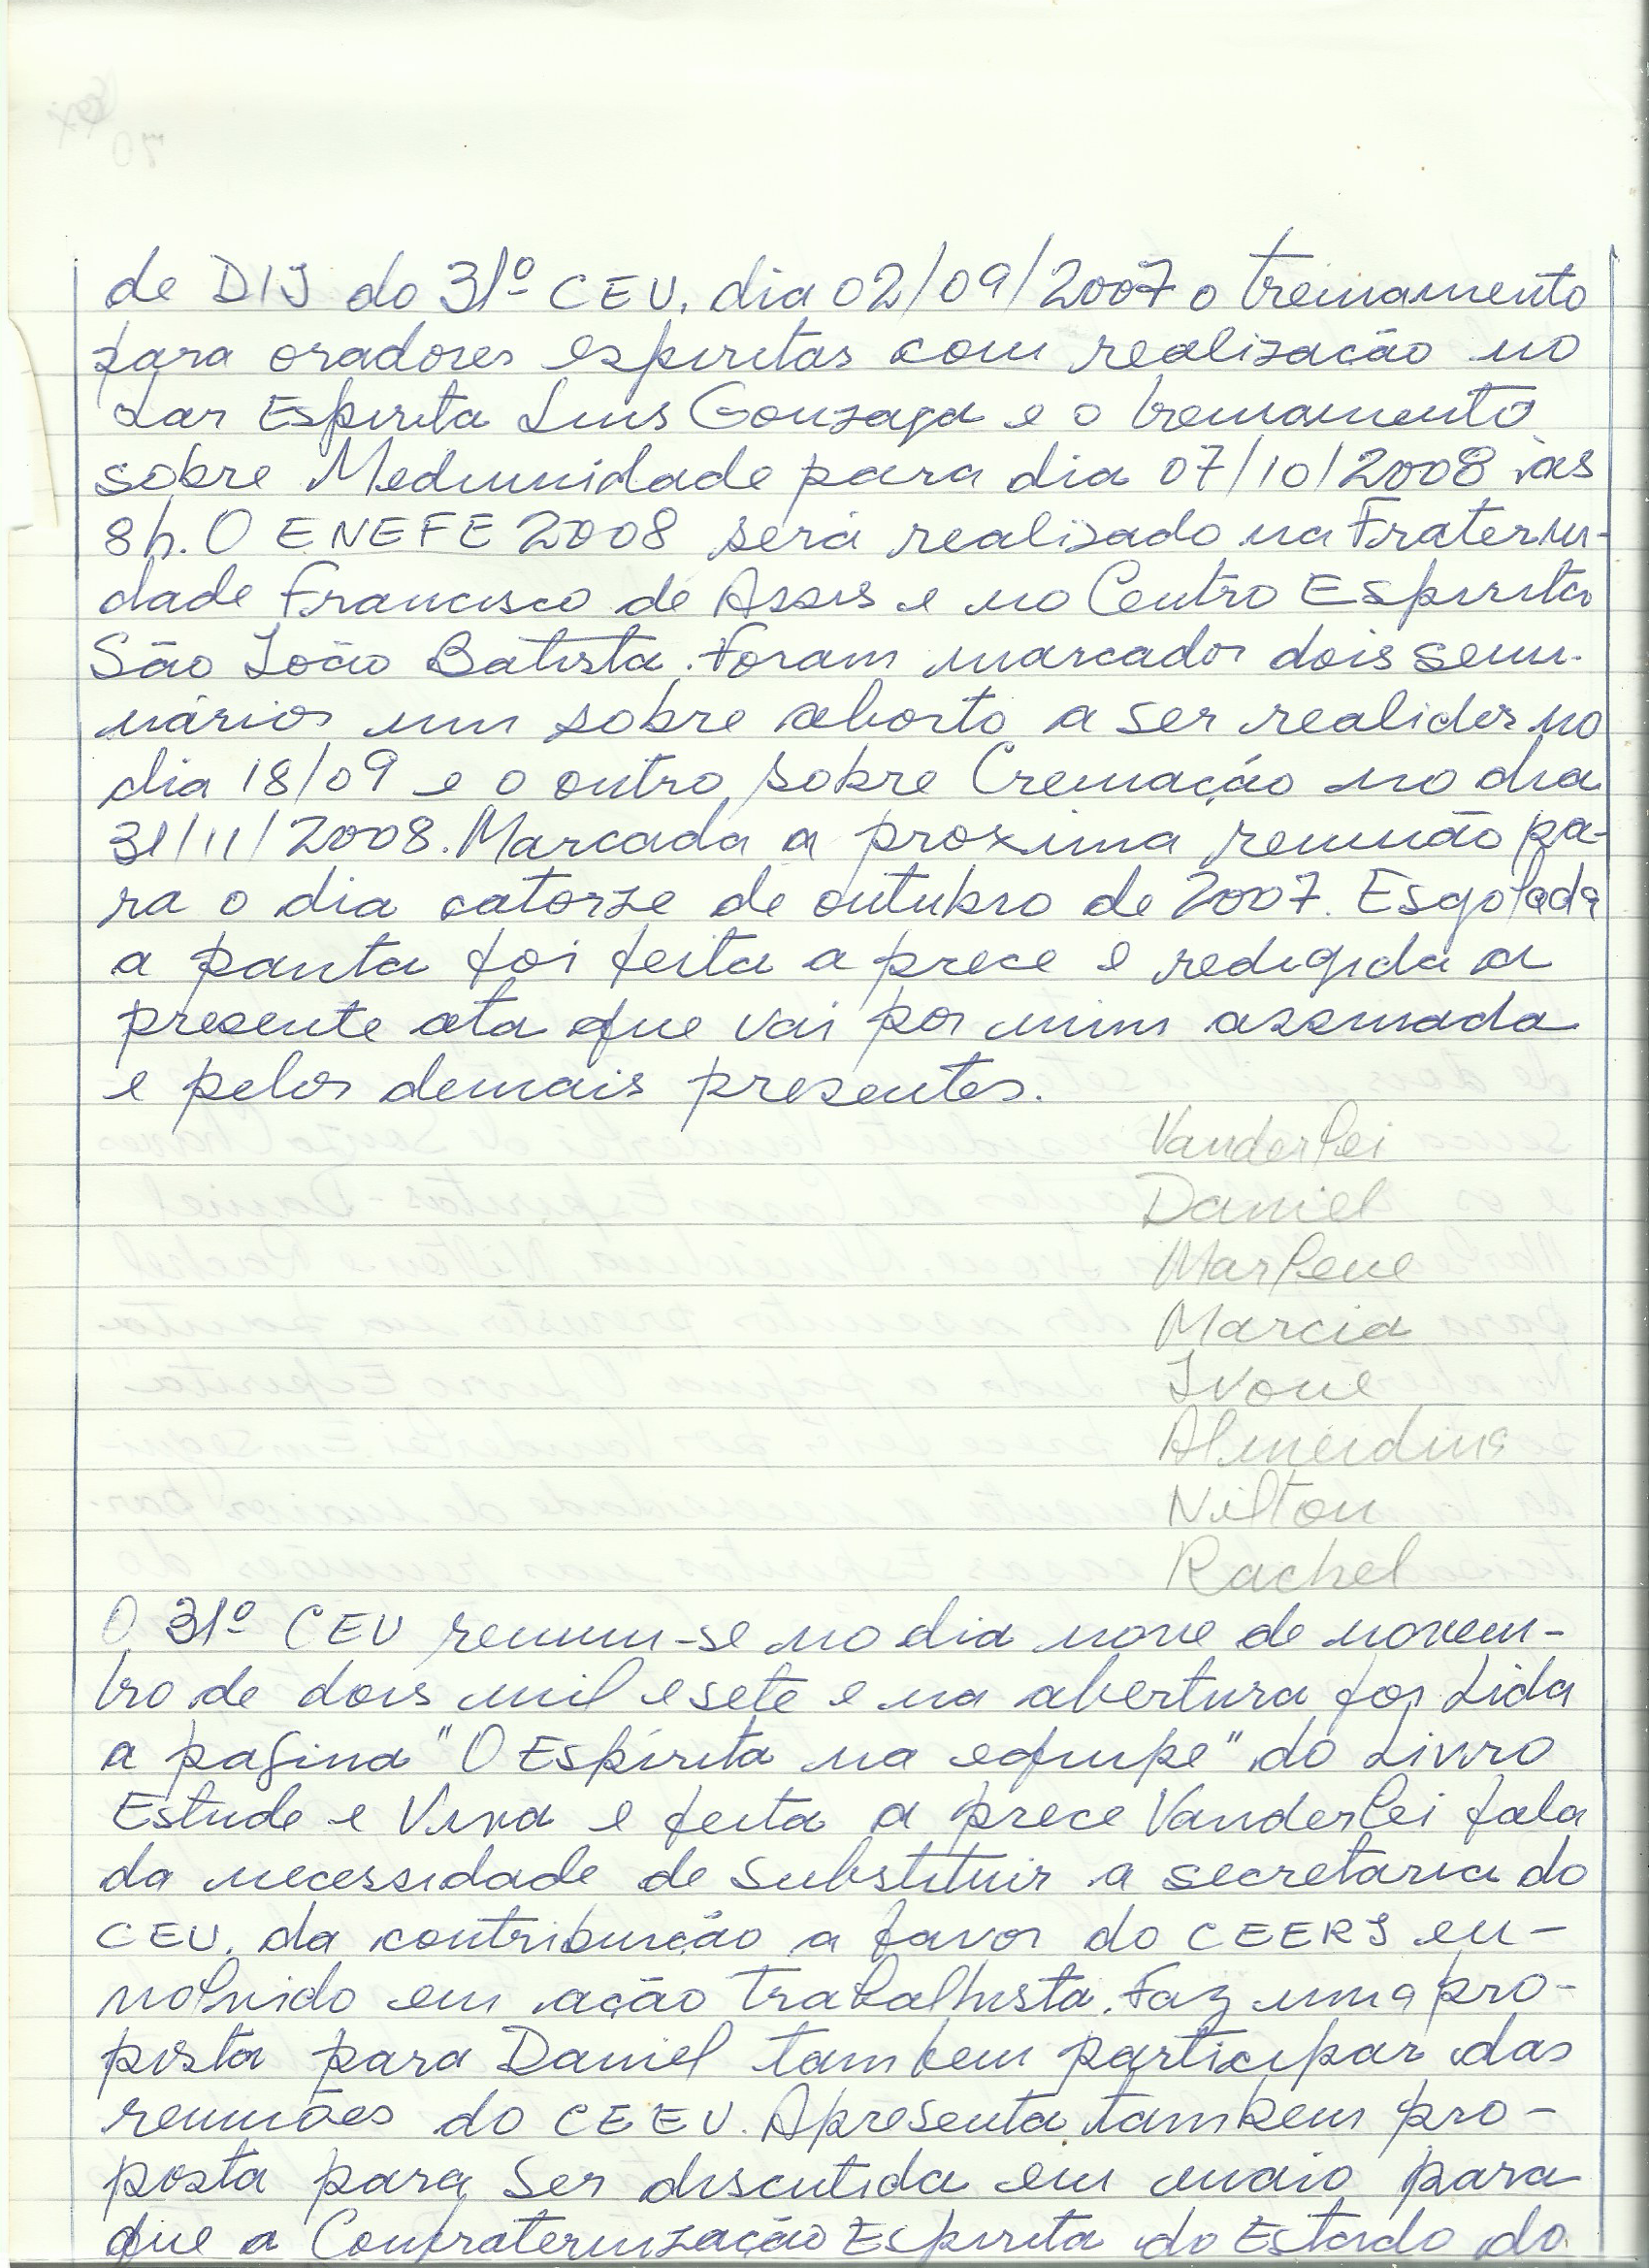 de DIJ do 31º CEU, dia 02/09/2007 o treinamento
para oradores espiritas com realização no
Lar Espirita Luis Gonzaga e o treinamento
sobre Mediunidade para dia 07/10/2008 às
8h. O ENEFE 2008 será realizado na Fraterni-
dade Francisco de Assis e no Centro Espirita
São João Batista. Foram marcados dois semi-
nários um sobre aborto a ser realider no
dia 18/09 e o outro sobre Cremação no dia
31/11/2008. Marcada a proxima reunião pa-
ra o dia catorze de outubro de 2007. Esgotada
a pauta foi feita a prece e redigida a
presente ata que vai por mim assinada
e pelos demais presentes.
Vanderlei
Daniel
Marlene
Marcia
Ivone
Almerdina
Nilton
Rachel
O 31º CEU reuniu-se no dia nove de novem-
bro de dois mil e sete e na abertura foi Lida
a pagina "O Espírita na equipe" do Livro
Estude e Viva e feita a prece Vanderlei fala
da necessidade de substituir a secretaria do
CEU, da contribuição a favor do CEERJ en-
volvido em ação trabalhista. Faz uma pro-
posta para Daniel tambem participar das
reuniões do CEEU. Apresenta tambem pro-
posta para ser discutida em maio para
que a Confraternização Espirita do Estado do